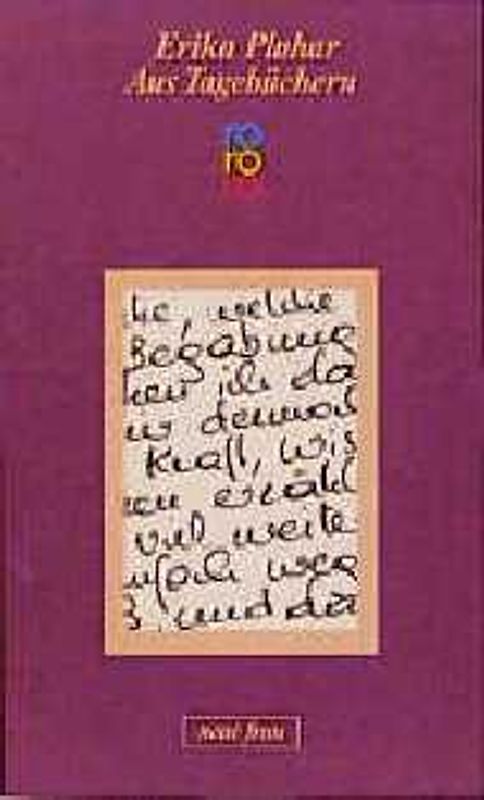 Erika Pluhar
Aus Tagebüchern
ro
ro
che, welche
Begabung
hen ich da
nur dennoch
Kraft, wis
zen erzähl
und weite
infach weg
und da
neue frau